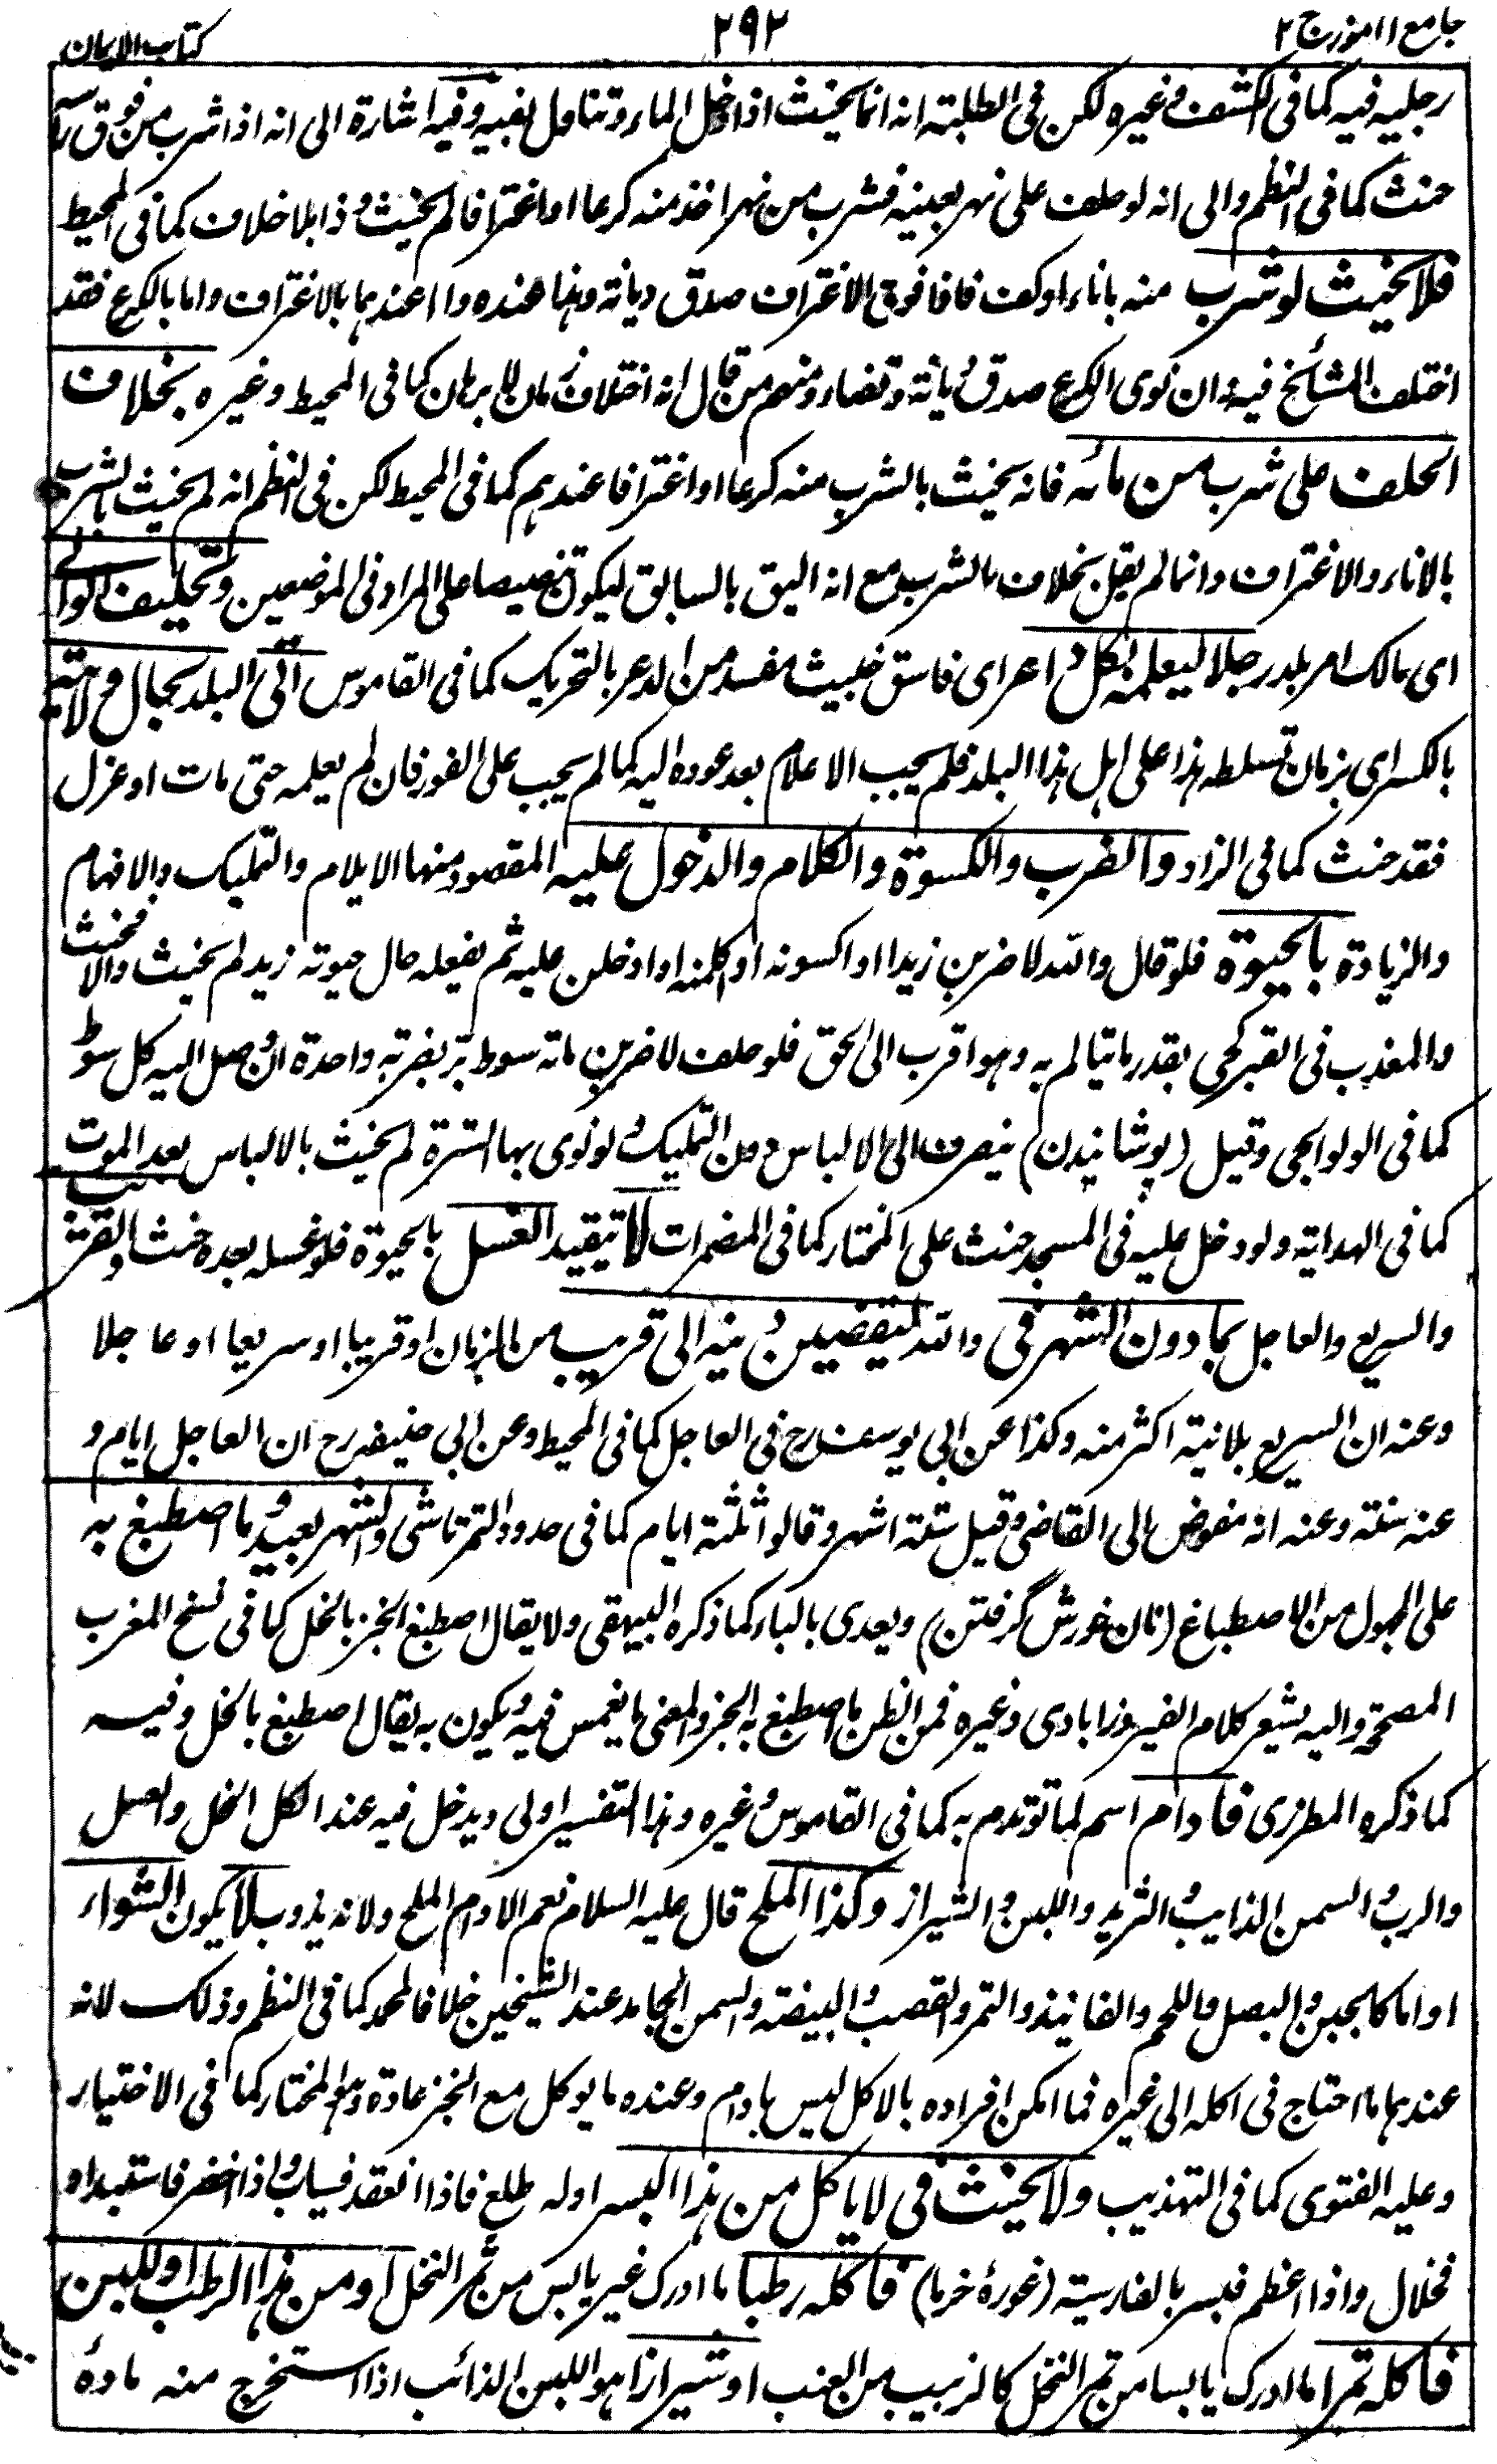 جامع الرموز ج ٢
٢٩٢
كتاب الايمان
رجليه فيه كما فى الكشف وغيره لكن فى الطلبة انه انما يحنث اذا دخل الماء وتناول بفيه وفيه اشارة الى انه اذا شرب من فوق
حنث كما فى النظم والى انه لو حلف على نهر بعينه فشرب من نهر اخذ منه كرعا او اغترافا لم يحنث وذا بلا خلاف كما فى المحيط
فلا يحنث لو شرب منه باناء او كف فما فوق الاغتراف صدق ديانة وهذا عنده واما عندهما بالاغتراف واما بالكرع فقد
اختلف المشائخ فيه وان نوى الكرع صدق ديانة وقضاء ومنهم من قال انه اختلاف زمان لا برهان كما فى المحيط وغيره بخلاف
الحلف على شرب من مائه فانه يحنث بالشرب منه كرعا او اغترافا عندهم كما فى المحيط لكن فى النظم انه لم يحنث بالشرب
بالاناء والاغتراف وانما لم يقل بخلاف الشرب مع انه اليق بالسابق ليكون تنصيصا على المراد فى الموضعين وتحليف الوالى
اى مالك امر بلد رجلا ليعلمنه بكل داعر اى فاسق خبيث مفسد من الدعر بالتحريك كما فى القاموس اتى البلد بحال ولايته
بالكسر اى بزمان تسلطه هذا على اهل هذا البلد فلم يجب الاعلام بعد عوده اليه كما لم يجب على الفور فان لم يعلمه حتى مات او عزل
فقد حنث كما فى الزاد والضرب والكسوة والكلام والدخول عليه المقصود منها الايلام والتمليك والافهام
والزيادة بالحيوة فلو قال والله لاضربن زيدا او اكسونه او اكلمنه او ادخلن عليه ثم يفعله حال حيوته زيد لم يحنث والا فحنث
والمعذب فى القبر كحى بقدر ما يتالم به وهو اقرب الى الحق فلو حلف لاضربن مائة سوط بر بضربة واحدة ان وصل اليه كل سوط
كما فى الولوالجى وقيل (پوشانيدن) ينصرف الى الالباس دون التمليك ولو نوى بها السترة لم يحنث بالالباس بعد الموت
كما فى الهداية ولو دخل عليه فى المسجد حنث على المختار كما فى المضمرات لا يتقيد الغسل بالحيوة فلو غسله بعده حنث والقريب
والسريع والعاجل بما دون الشهر فى والله لتقضين دينه الى قريب من الزمان او قريبا او سريعا او عاجلا
وعنه ان السريع بلا نية اكثر منه وكذا عن ابى يوسف رح فى العاجل كما فى المحيط وعن ابى حنيفه رح ان العاجل ايام و
عنه سنة وعنه انه مفوض الى القاضى وقيل ستة اشهر وقالوا ثلثة ايام كما فى حدود التمرتاشى والشهر بعيد وما اصطبغ به
على المجهول من الاصطباغ (نان خورش گرفتن) ويعدى بالباء كما ذكره البيهقى ولا يقال اصطبغ الخبز بالخل كما فى نسخ المغرب
المصححة واليه يشير كلام الفيروزابادى وغيره فمن الظن ما اصطبغ به الخبز والمعنى ما يغمس فيه ويكون به يقال اصطبغ بالخل وفيه
كما ذكره المطرزى فادام اسم لما يؤتدم به كما فى القاموس وغيره وهذا التفسير اولى ويدخل فيه عند الكل الخل والعسل
والرب والسمن الذايب والثريد واللبن والشيراز وكذا الملح قال عليه السلام نعم الادام الملح ولانه يذوب لا يكون الشواء
اداما كالجبن والبصل واللحم والفانيذ والتمر والقصب والبيضة والسمن الجامد عند الشيخين خلافا لمحمد كما فى النظم وذلك لانه
عندهما ما احتاج فى اكله الى غيره فما امكن افراده بالاكل ليس بادام وعنده ما يوكل مع الخبز عادة وهو المختار كما فى الاختيار
وعليه الفتوى كما فى التهذيب ولا يحنث فى لا ياكل من هذا البسر اوله طلع فاذا انعقد فسياب واذا اخضر فاستبداد
فخلال واذا اعظم فبسر بالفارسية (غورهٔ خرما) فاكله رطبا ما ادرك غير يابس من ثمر النخل او من هذا الرطب او اللبن
فاكله تمرا ما ادرك يابسا من تمر النخل كالزبيب من العنب او شيرازا هو اللبن الذائب اذا استخرج منه مادهٔ